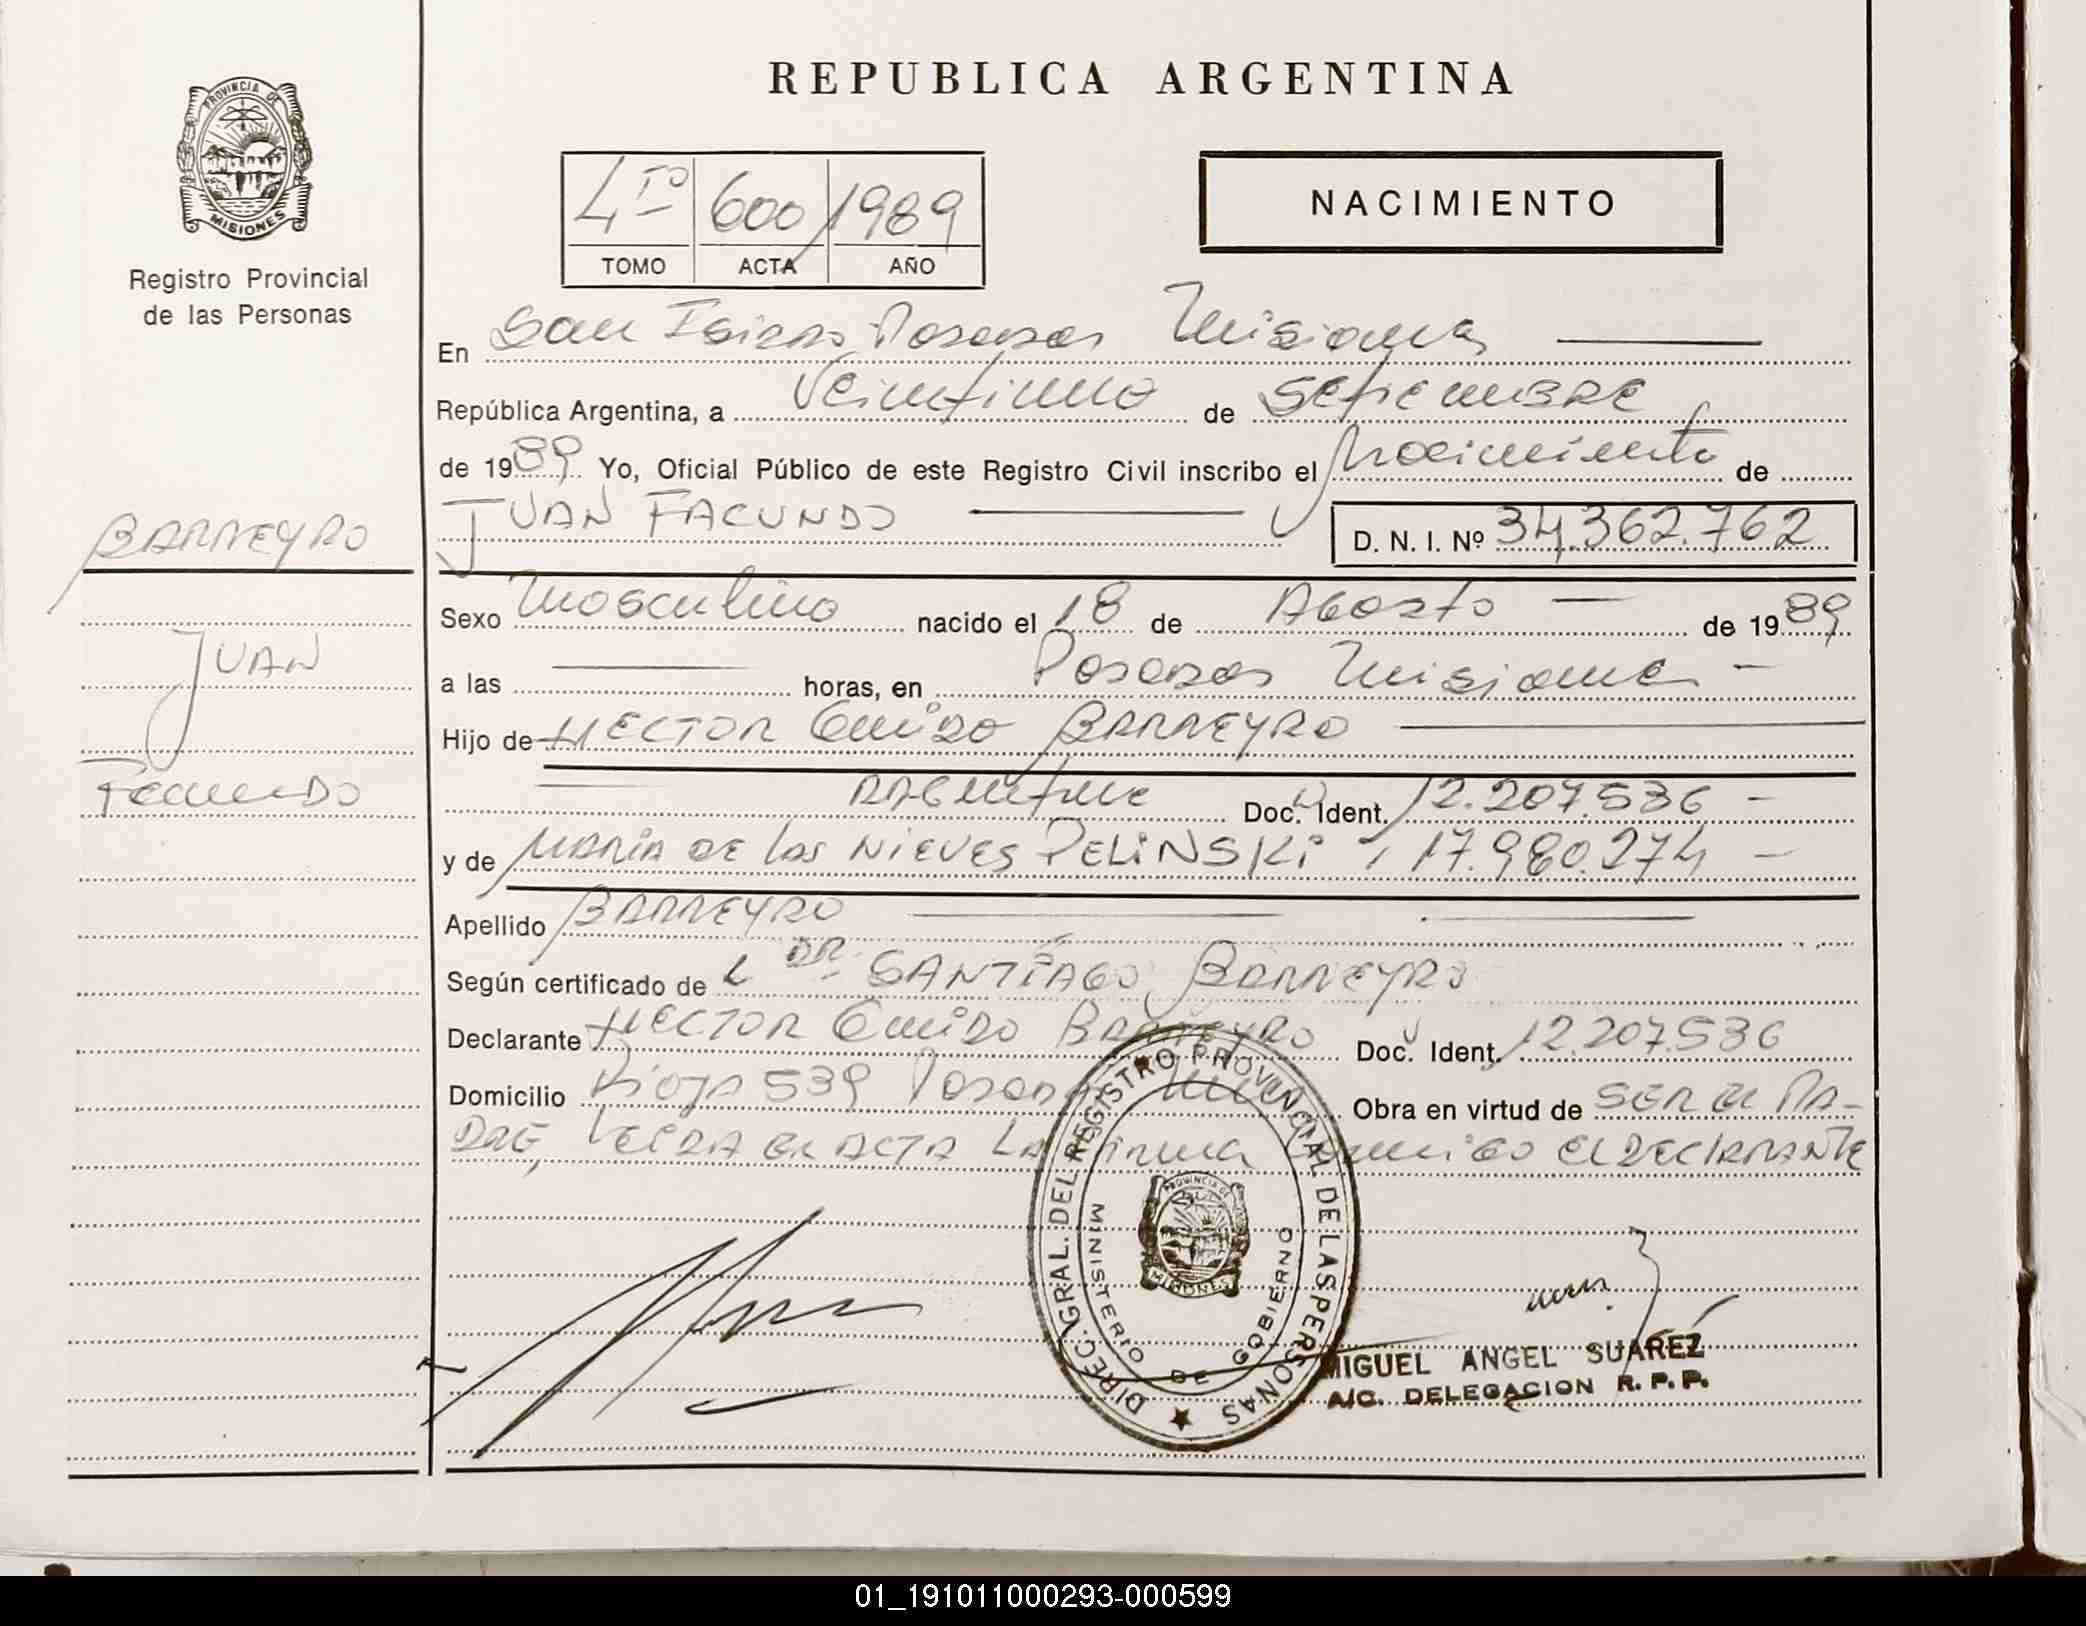 REPUBLICA ARGENTINA
PROVINCIA DE
MISIONES
Registro Provincial
de las Personas
4TO 600 1989
TOMO ACTA AÑO
NACIMIENTO
En San Isidro Posadas Misiones
República Argentina, a Veintiuno de Setiembre
de 1989 Yo, Oficial Público de este Registro Civil inscribo el Nacimiento de
JUAN FACUNDO D. N. I. Nº 34.362.762
BARREYRO
JUAN
Facundo
Sexo Masculino nacido el 18 de Agosto de 1989
a las horas, en Posadas Misiones
Hijo de HECTOR Guido BARREYRO
Argentino Doc. Ident. 12.207.536
y de MARIA DE LAS NIEVES PELINSKI 17.980.274
Apellido BARREYRO
Según certificado de DR. SANTIAGO BARREYRO
Declarante HECTOR Guido BARREYRO Doc. Ident. 12.207.536
Domicilio Rioja 539 Posadas Obra en virtud de SER EL PA-
DRE, LEIDA EL ACTA LA Firma Conmigo EL DECLARANTE
DIREC. GRAL. DEL REGISTRO PROVINCIAL DE LAS PERSONAS
MINISTERIO DE GOBIERNO
PROVINCIA DE
MISIONES
MIGUEL ANGEL SUAREZ
A/C. DELEGACION R. P. P.
01_191011000293-000599